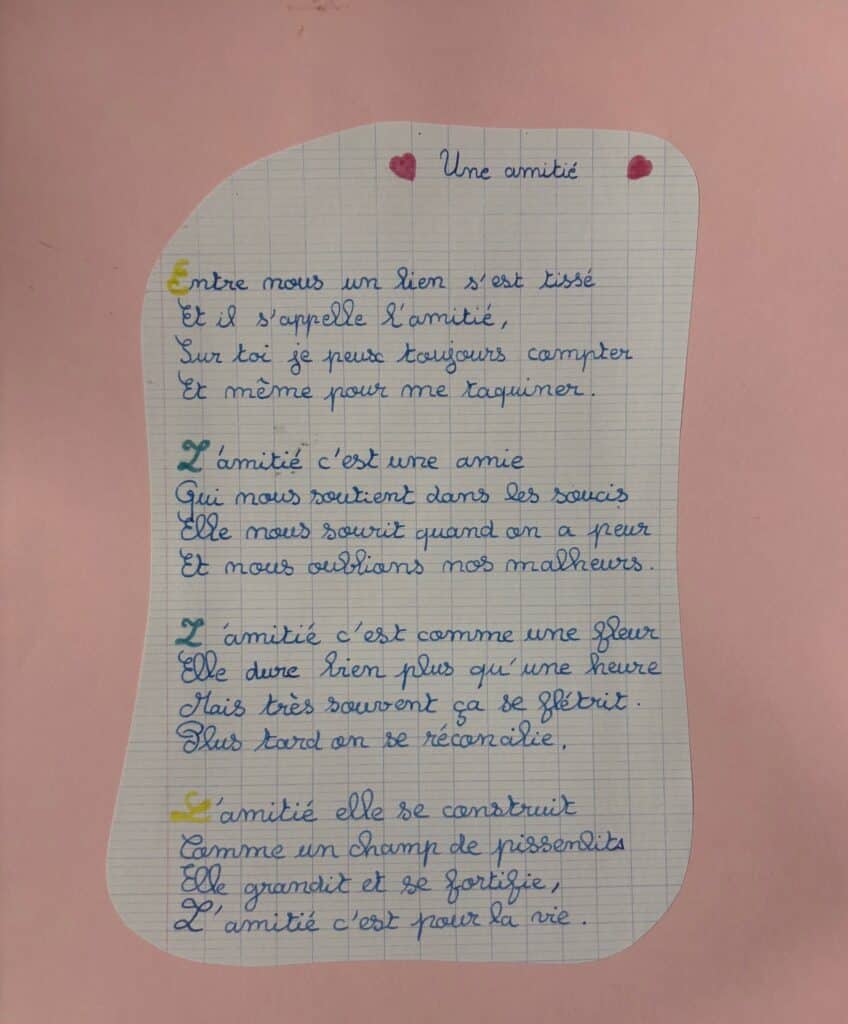 Une amitié
Entre nous un lien s'est tissé
Et il s'appelle l'amitié,
Sur toi je peux toujours compter
Et même pour me taquiner.
L'amitié c'est une amie
Qui nous soutient dans les soucis
Elle nous sourit quand on a peur
Et nous oublions nos malheurs.
L'amitié c'est comme une fleur
Elle dure bien plus qu'une heure
Mais très souvent ça se flétrit.
Plus tard on se réconcilie.
L'amitié elle se construit
Comme un champ de pissenlits
Elle grandit et se fortifie,
L'amitié c'est pour la vie.